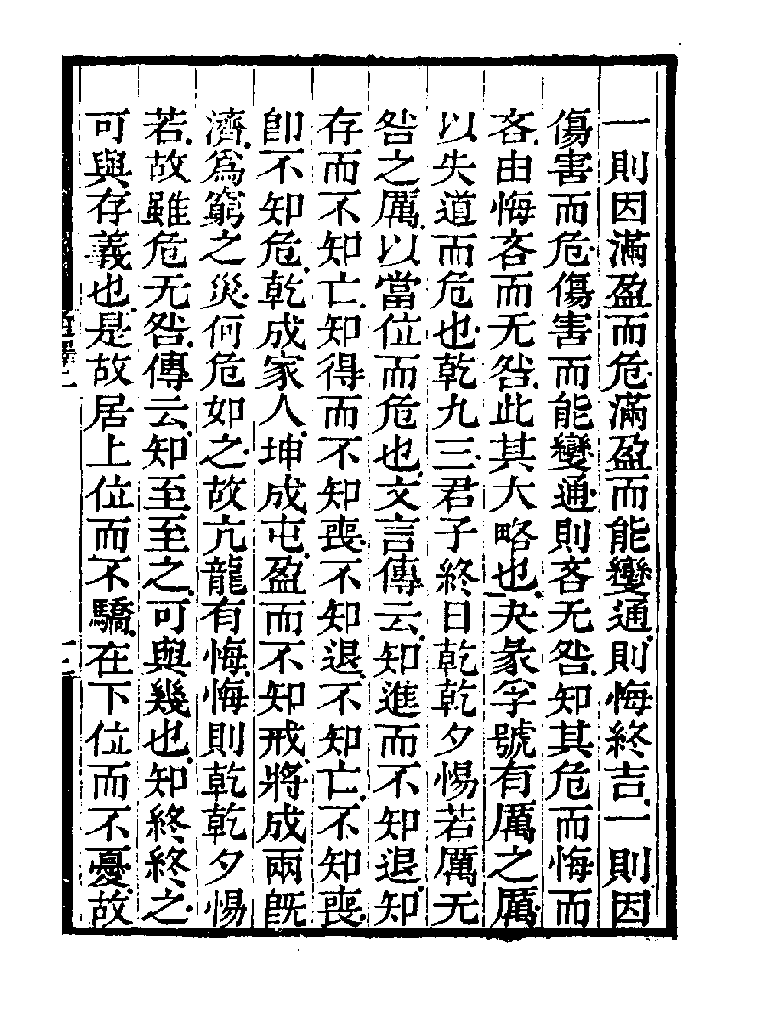 一則因滿盈而危滿盈而能變通則悔終吉一則因
傷害而危傷害而能變通則吝无咎知其危而悔而
吝由悔吝而无咎此其大略也夬彖孚號有厲之厲
以失道而危也乾九三君子終日乾乾夕惕若厲无
咎之厲以當位而危也文言傳云知進而不知退知
存而不知亡知得而不知喪不知退不知亡不知喪
卽不知危乾成家人坤成屯盈而不知戒將成兩旣
濟爲窮之災何危如之故亢龍有悔悔則乾乾夕惕
若故雖危无咎傳云知至至之可與幾也知終終之
可與存義也是故居上位而不驕在下位而不憂故